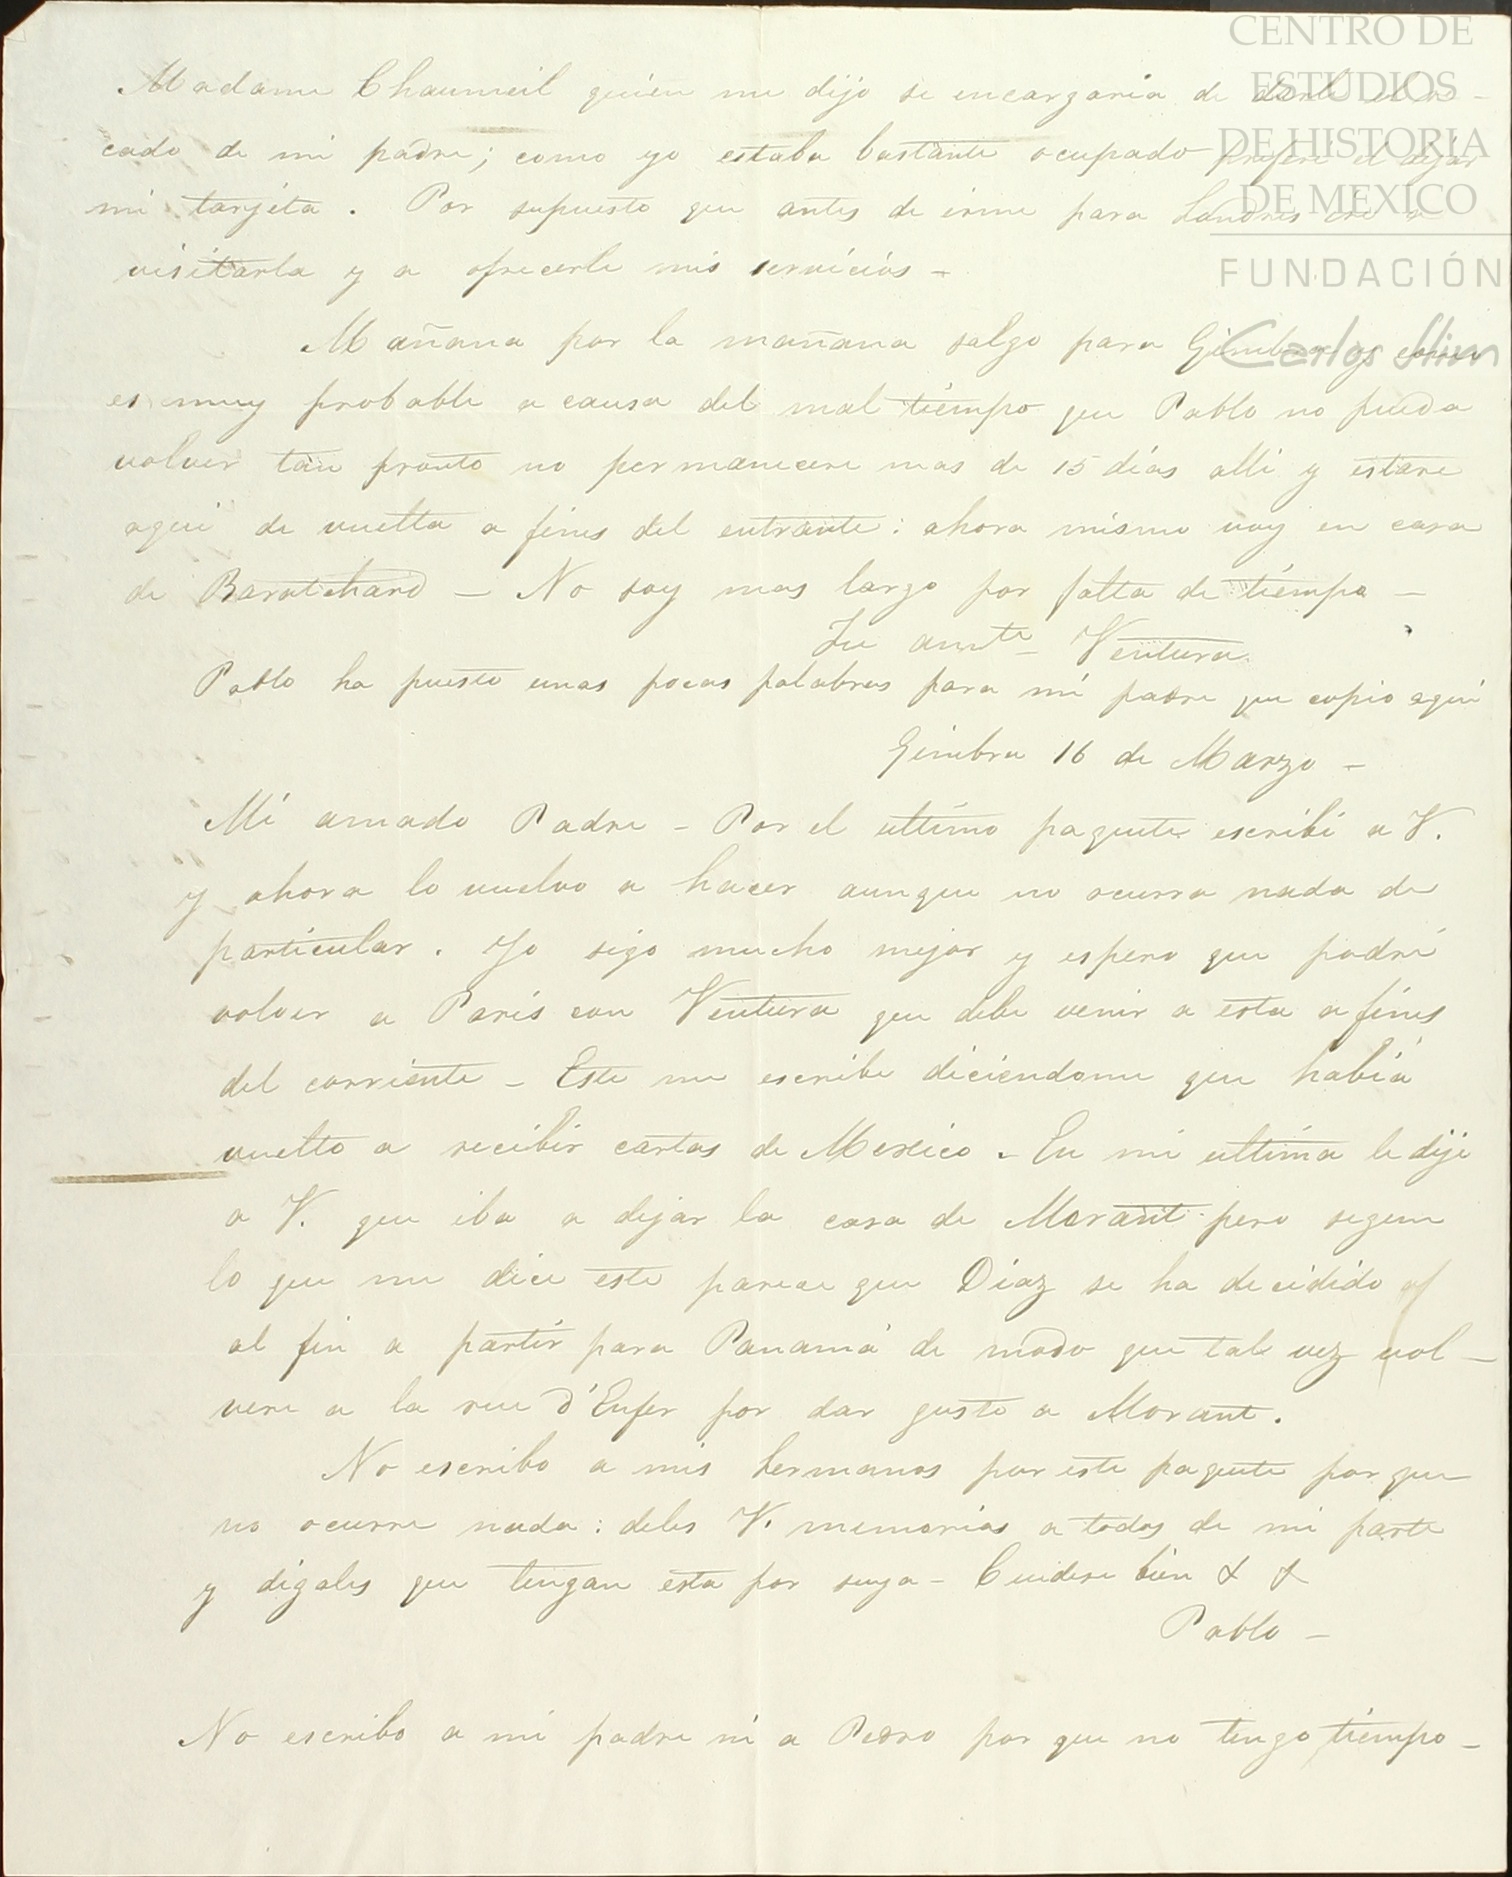 CENTRO DE
ESTUDIOS
DE HISTORIA
DE MEXICO
FUNDACIÓN
Carlos Slim
Madame Chaumeil quien me dijo se encargaria de darle el re-
cado de mi padre; como yo estaba bastante ocupado preferi el dejar
mi tarjeta. Por supuesto que antes de irme para Londres ire a
visitarla y a ofrecerle mis servicios -
Mañana por la mañana salgo para Ginebra y como
es muy probable a causa del mal tiempo que Pablo no pueda
volver tan pronto no permanecere mas de 15 dias alli y estare
aqui de vuelta a fines del entrante: ahora mismo voy en casa
de Baratchard - No soy mas largo por falta de tiempo -
Tu amte Ventura.
Pablo ha puesto unas pocas palabras para mi padre que copio aqui
Ginebra 16 de Marzo -
Mi amado Padre - Por el ultimo paquete escribi a V.
y ahora lo vuelvo a hacer aunque no ocurra nada de
particular. Yo sigo mucho mejor y espero que podré
volver a Paris con Ventura que debe venir a esta a fines
del corriente - Este me escribe diciendome que habia
vuelto a recibir cartas de Mexico - En mi ultima le dije
a V. que iba a dejar la casa de Morant pero segun
lo que me dice este parece que Diaz se ha decidido
al fin a partir para Panamá de modo que tal vez vol-
vere a la rue d'Enfer por dar gusto a Morant.
No escribo a mis hermanos por este paquete porque
no ocurre nada: deles V. memorias a todos de mi parte
y digales que tengan esta por suya - Cuidese bien & &
Pablo -
No escribo a mi padre ni a Pedro por que no tengo tiempo -